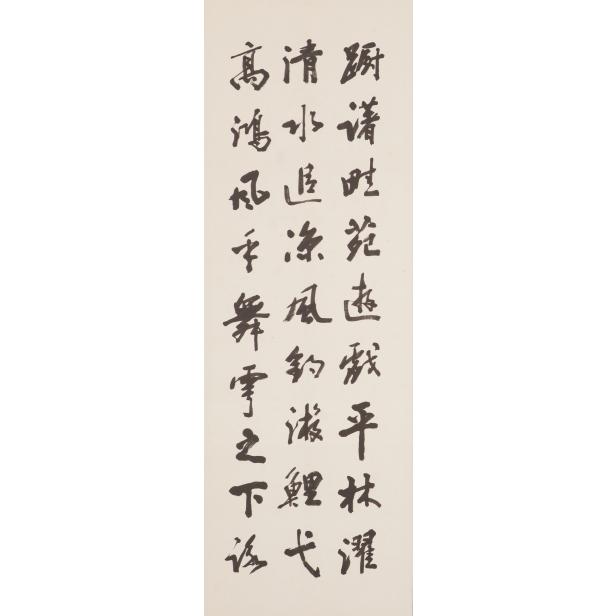 蹰躇畦苑遊戲平林濯
清水追凉風釣游鯉弋
高鴻風乎舞雩之下詠